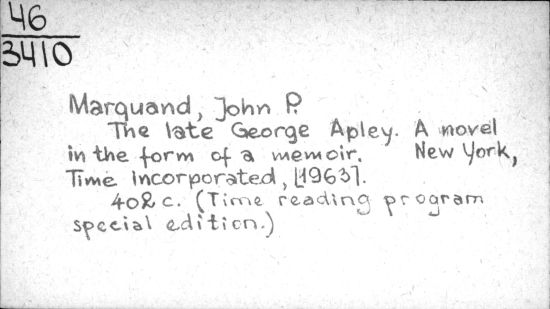 46
3410
Marquand, John P.
The late George Apley. A novel
in the form of a memoir. New York,
Time incorporated, [1963].
402 c. (Time reading program
special edition.)